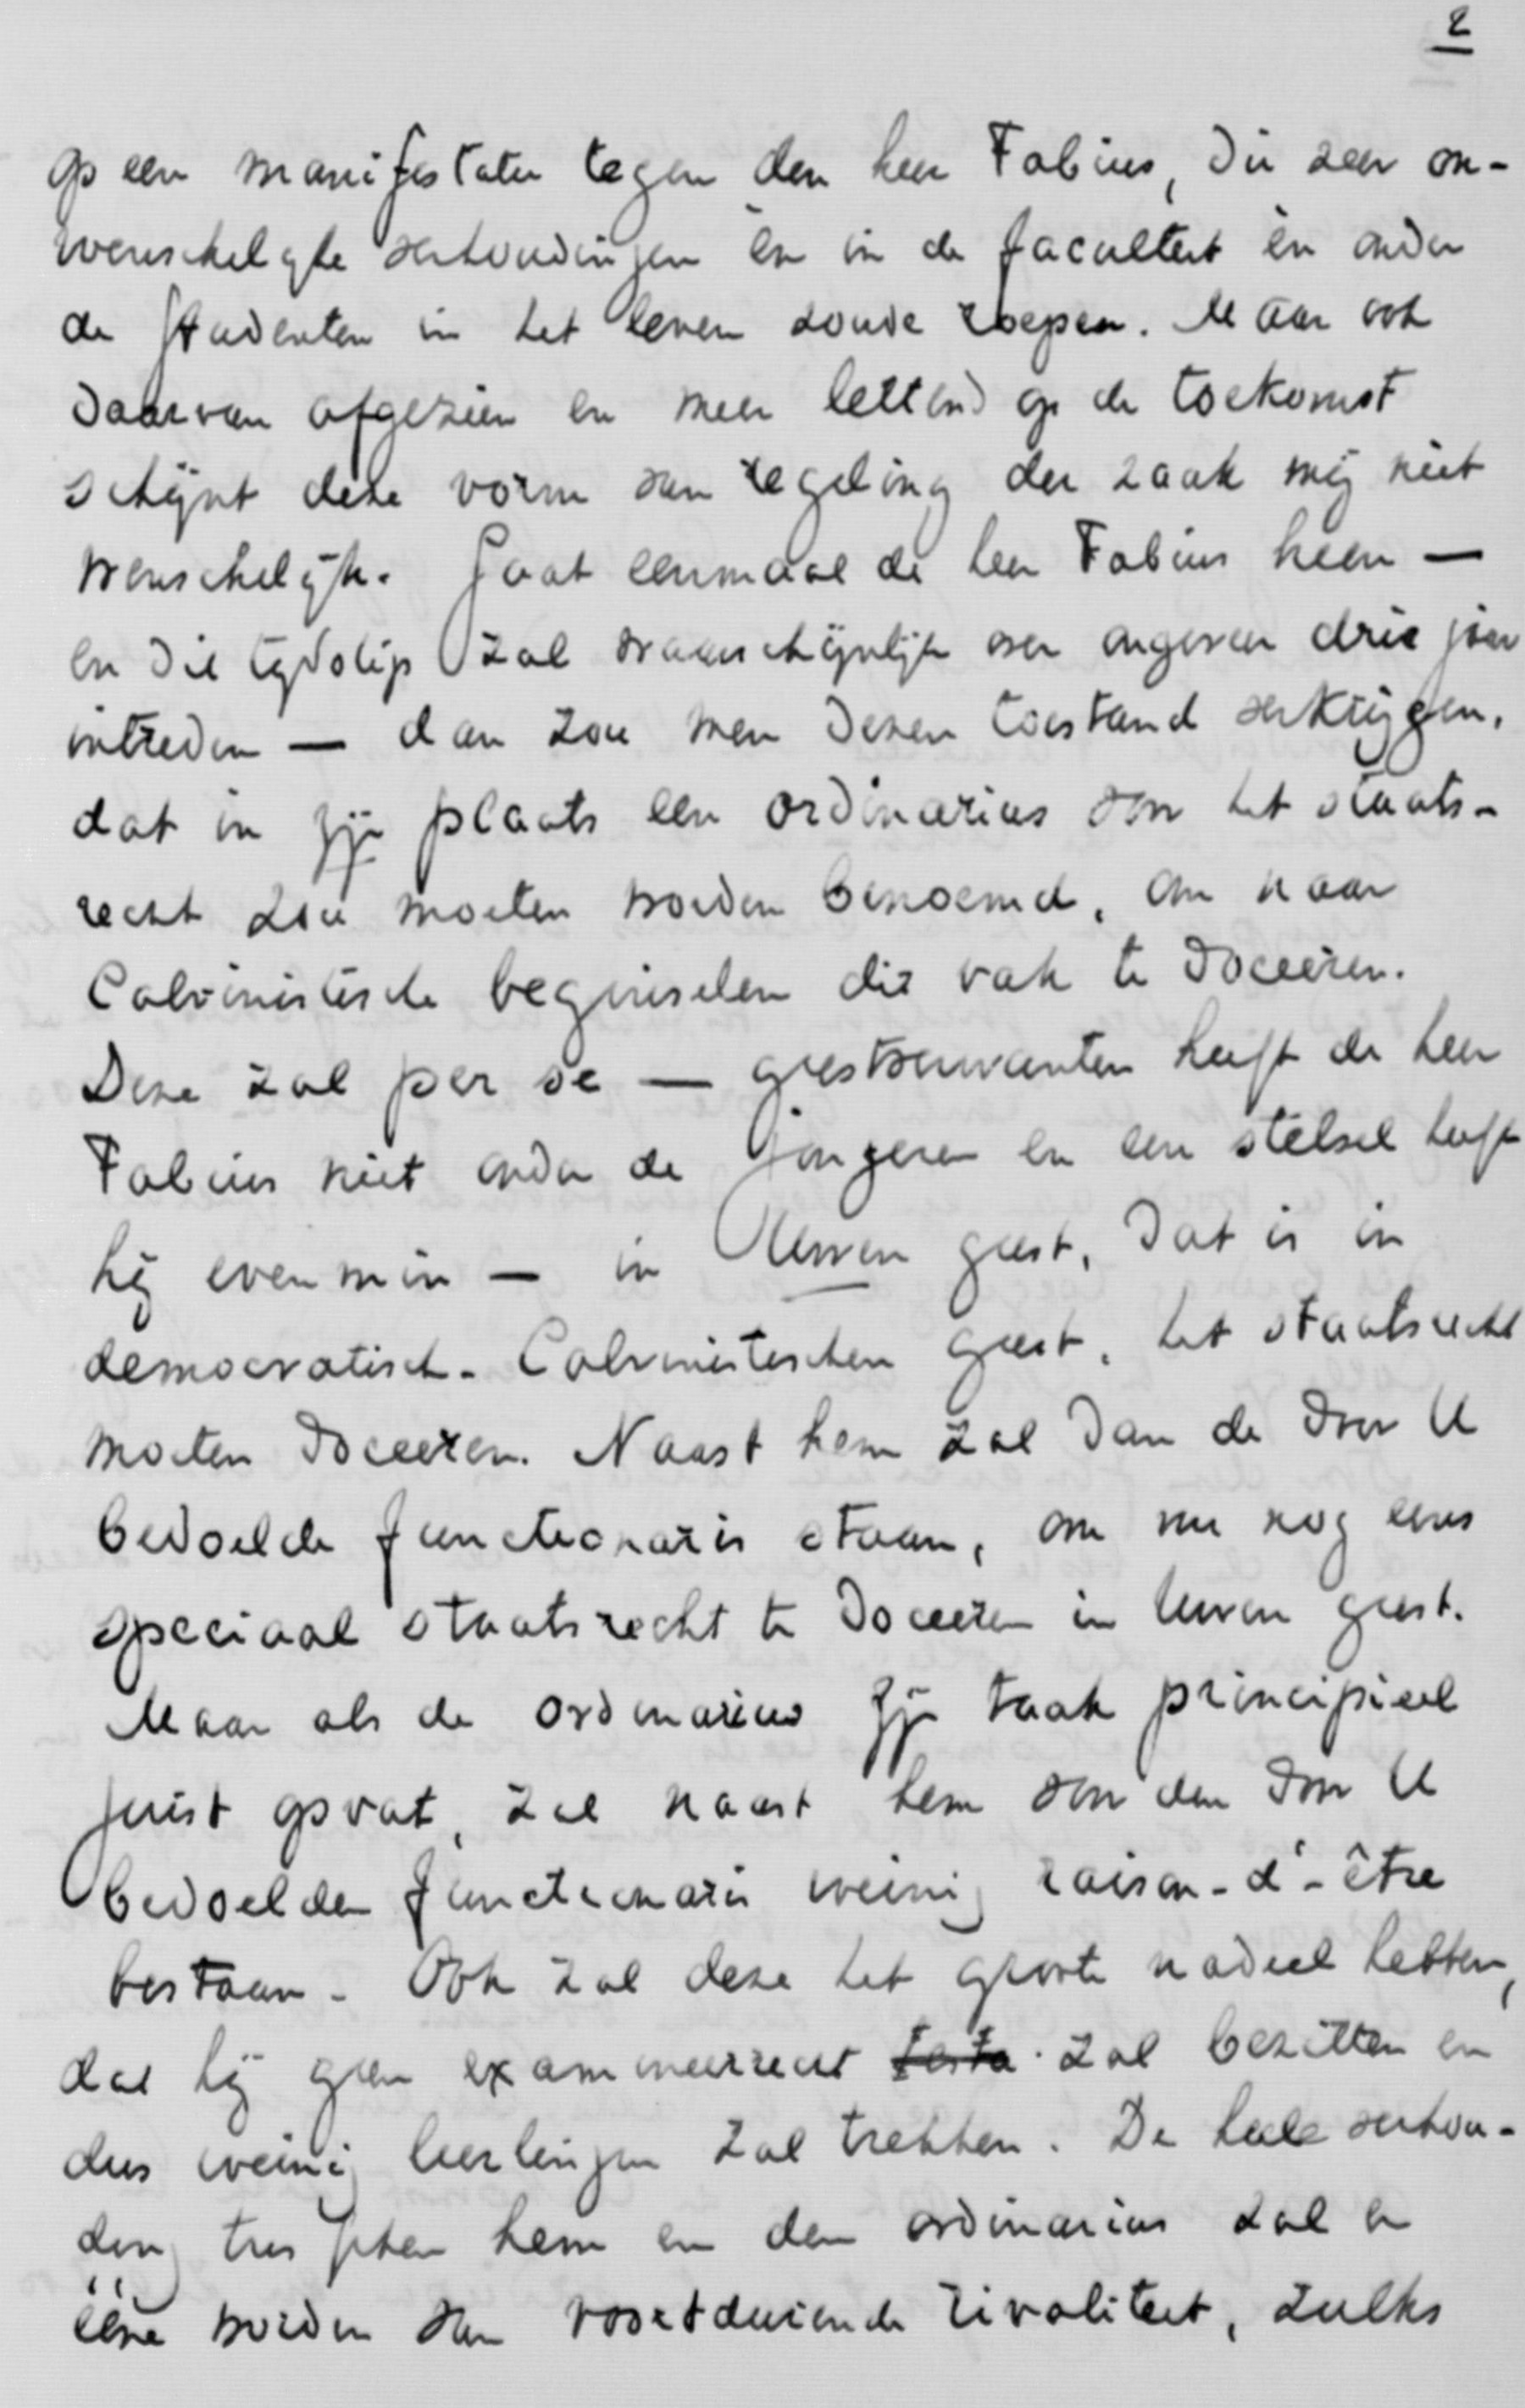 2
op een manifestatie tegen den heer Fabius, die zeer on-
wenschelijke verhoudingen èn in de faculteit èn onder
de studenten in het leven zoude roepen. Maar ook
daarvan afgezien en meer lettend op de toekomst
schijnt deze vorm van regeling der zaak mij niet
wenschelijk. Gaat eenmaal de heer Fabius heen —
en die tijdstip zal waarschijnlijk over ongeveer drie jaar
intreden — dan zou men dezen toestand verkrijgen,
dat in zijn plaats een ordinarius voor het staats-
recht zou moeten worden benoemd, om naar
Calvinistische beginselen dit vak te doceeren.
Deze zal per se — geestverwanten heeft de heer
Fabius niet onder de jongeren en een stelsel heeft
hij evenmin — in Uwen geest, dat is in
democratisch-Calvinistischen geest, het staatsrecht
moeten doceeren. Naast hem zal dan de door U
bedoelde functionaris staan, om nu nog eens
speciaal staatsrecht te doceeren in Uwen geest.
Maar als de ordinarius zijn taak principieel
juist opvat, zal naast hem voor den door U
bedoelden functionaris weinig raison-d'-être
bestaan. Ook zal deze het groote nadeel hebben,
dat hij geen examineerrecht zal bezitten en
dus weinig leerlingen zal trekken. De heele verhou-
ding tusschen hem en den ordinarius zal er
eene worden van voortdurende rivaliteit, zulks